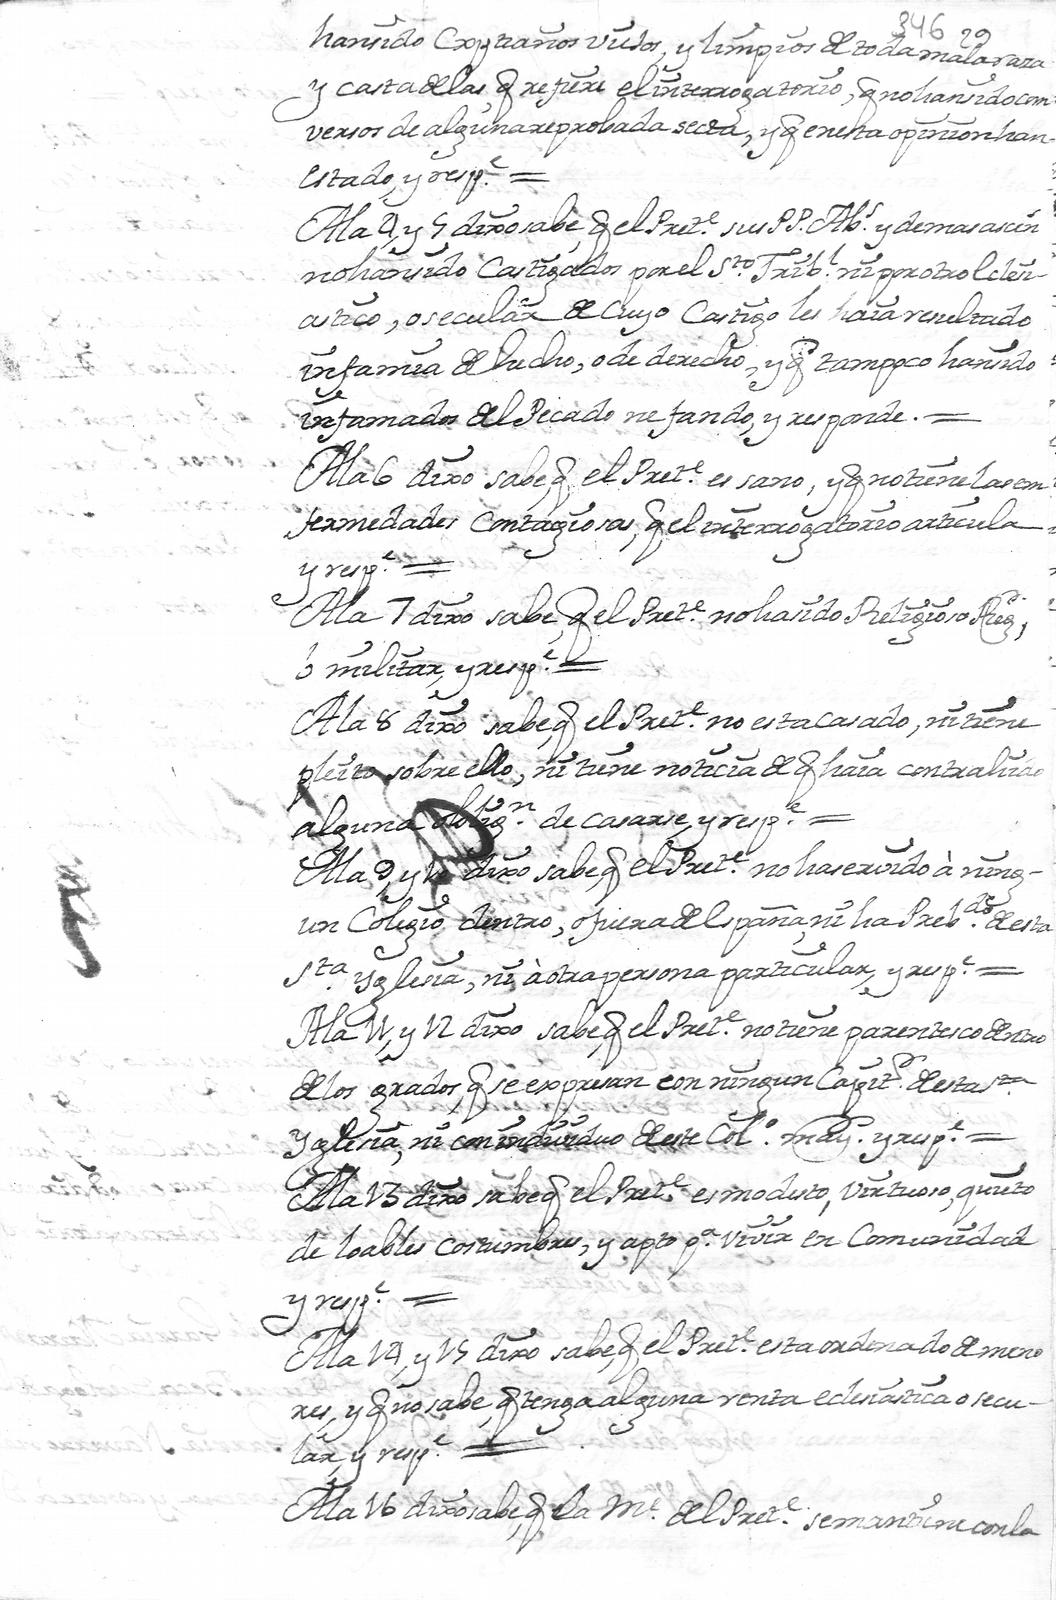 346 29
han sido Cxptianos viejos, y limpios de toda mala raza
y casta de las q refiere el interrogatorio, q no han sido com
versos de alguna reprobada secta, y q en esta opinion han
estado, y resp.e =
A la 4, y 5 dixo sabe, q el Pret.e sus PP. Ab.s y demas ascen
no han sido Castigados por el S.to Trib.l ni por otro Eclesi
astico, o secular de cuyo Castigo les haia resultado
infamia de hecho, o de derecho, y q tampoco han sido
infamados del Pecado nefando, y responde. =
A la 6 dixo sabe, q el Pret.e es sano, y q no tiene las en
fermedades Contagiosas, q el interrogatorio articula
y resp.e =
A la 7 dixo sabe, q el Pret.e no ha sido Religioso Reg,
ò militar, y resp.e =
A la 8 dixo sabe, q el Pret.e no esta casado, ni tiene
pleito sobre ello, ni tiene noticia de q haia contrahido
alguna oblig.n de casarse, y resp.e =
A la 9, y 10 dixo sabe, q el Pret.e no ha servido à ning-
un Colegio dentro, o fuera de España, ni ha Preb.do de esta
S.ta Yglesia, ni à otra persona particular, y resp.e =
A la 11, y 12 dixo sabe, q el Pret.e no tiene parentesco dentro
de los grados, q se expresan con ningun Capit.r de esta S.ta
Yglesia, ni con individuo de este Col.o may. y resp.e =
A la 13 dixo sabe q el Pret.e es modesto, virtuoso, quieto
de loables costumbres, y apto p.a vivir en Comunidad
y resp.e =
A la 14, y 15 dixo sabe, q el Pret.e esta ordenado de meno
res, y q no sabe, q tenga alguna renta eclesiastica o secu-
lar, y resp.e =
A la 16 dixo sabe, q la M.e del Pret.e se mantiene con la